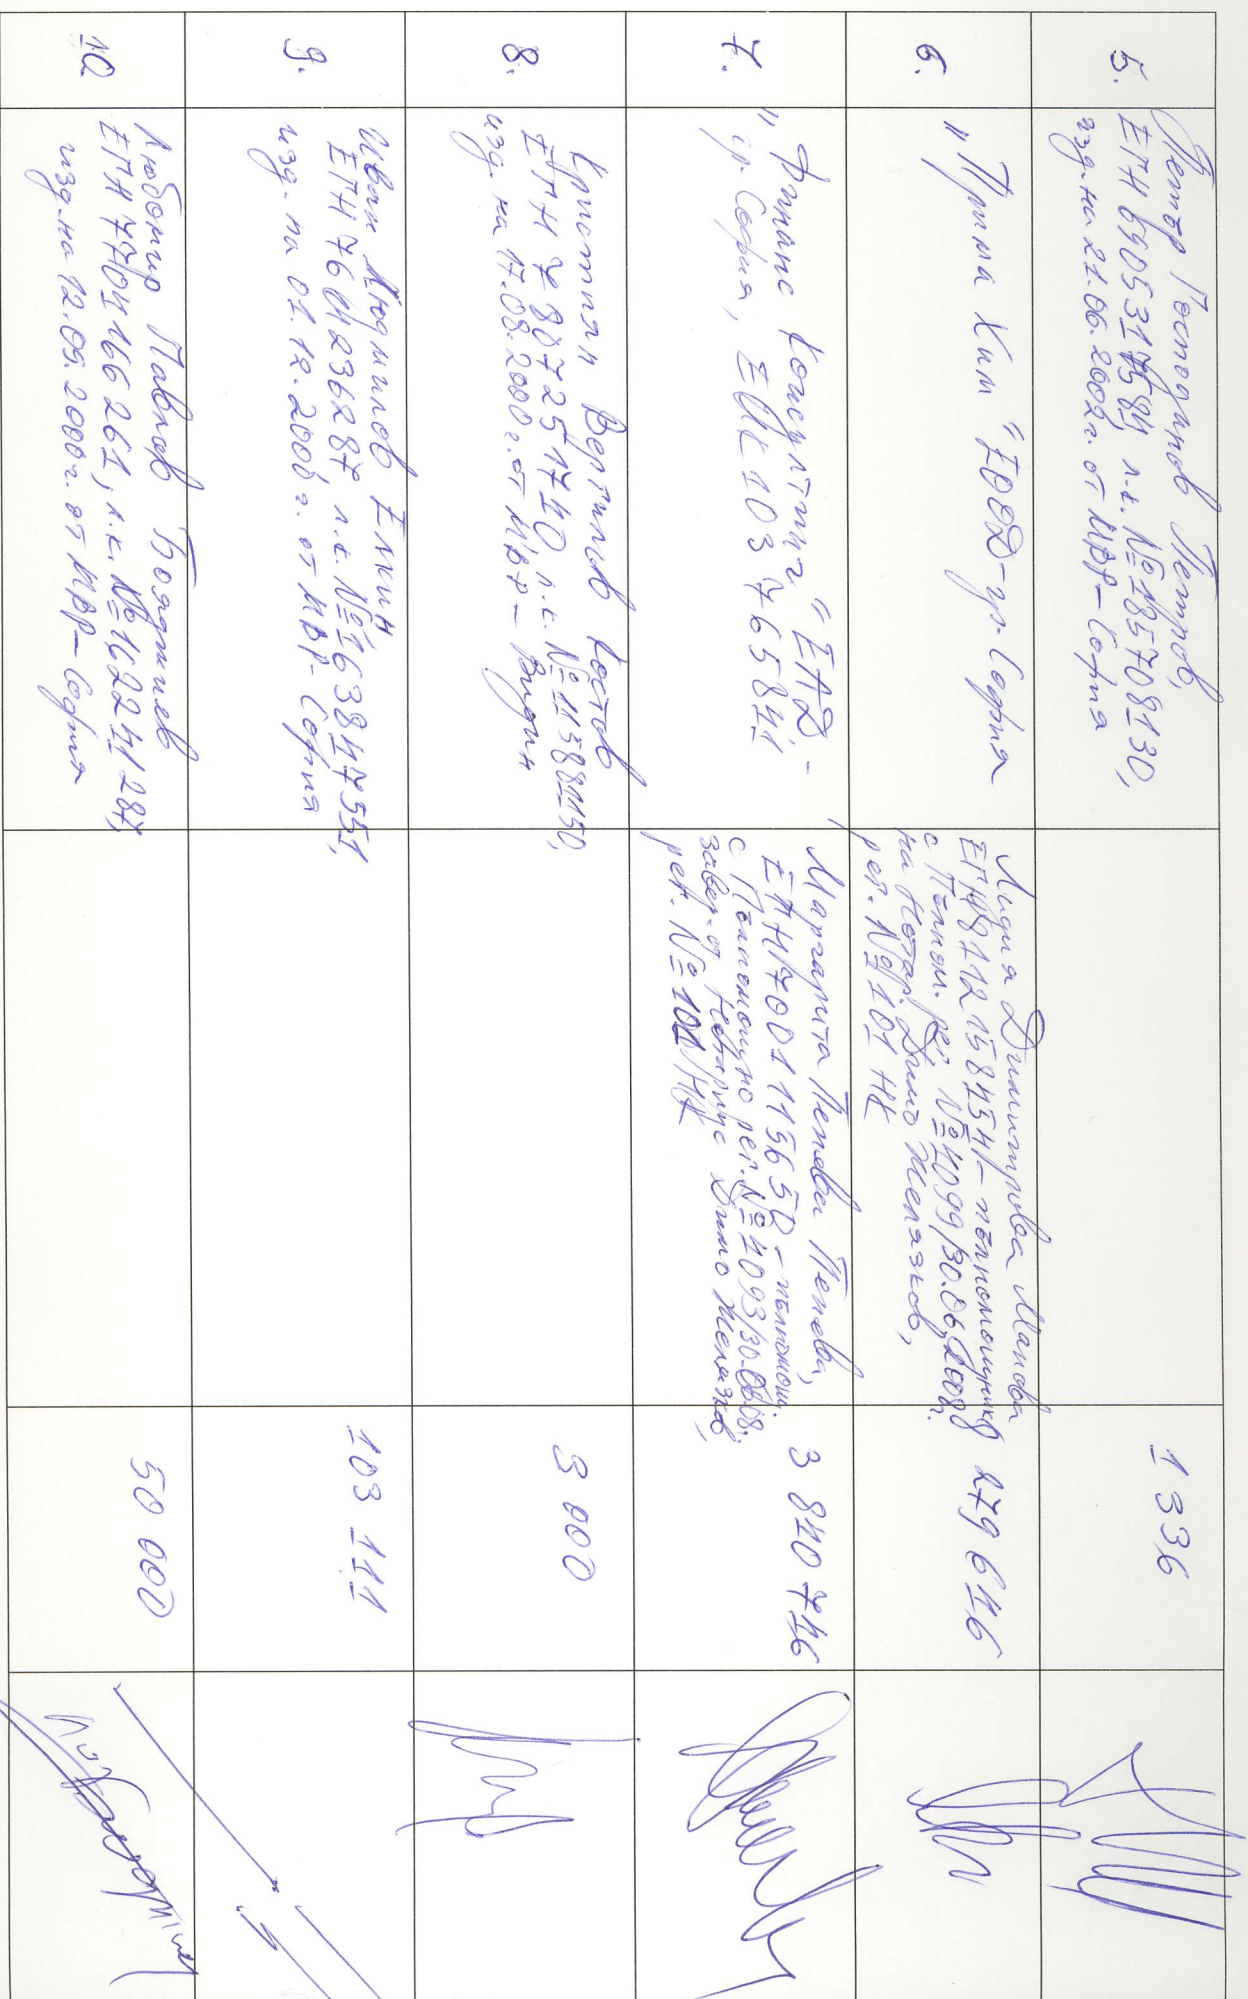 5.
Петър Господинов Петров,
ЕГН 6905317584, л.к. №185708130,
изд. на 21.06.2002г. от МВР-София
1 336
6.
"Прима Хим" ЕООД-гр. София
Лидия Димитрова Манова
с Пълном. рег. №1099/30.06.2008г.
на Нотар. Димо Желязков,
рег. №101 НК
279 616
7.
"Финанс Консултинг" ЕАД -
гр. София, ЕИК 103765841
Маргарита Пенева Пенева,
ЕГН 7001115650 - пълномощ.
с Пълномощно рег. №1093/30.06.08г.
завер. от Нотариус Димо Желязков,
рег. №101/НК
3 840 746
8.
Кристиян Костов
ЕГН 7807251740, л.к. №115881150,
изд. на 17.08.2000г. от МВР - Видин
3 000
9.
Иван Людмилов Енчин
ЕГН 7604236287 л.к. №163847551,
изд. на 01.12.2000г. от МВР-София
103 111
10
Любомир Павлов Бояджиев
ЕГН 7704166261, л.к. №162241287,
изд. на 12.05.2000г. от МВР-София
50 000